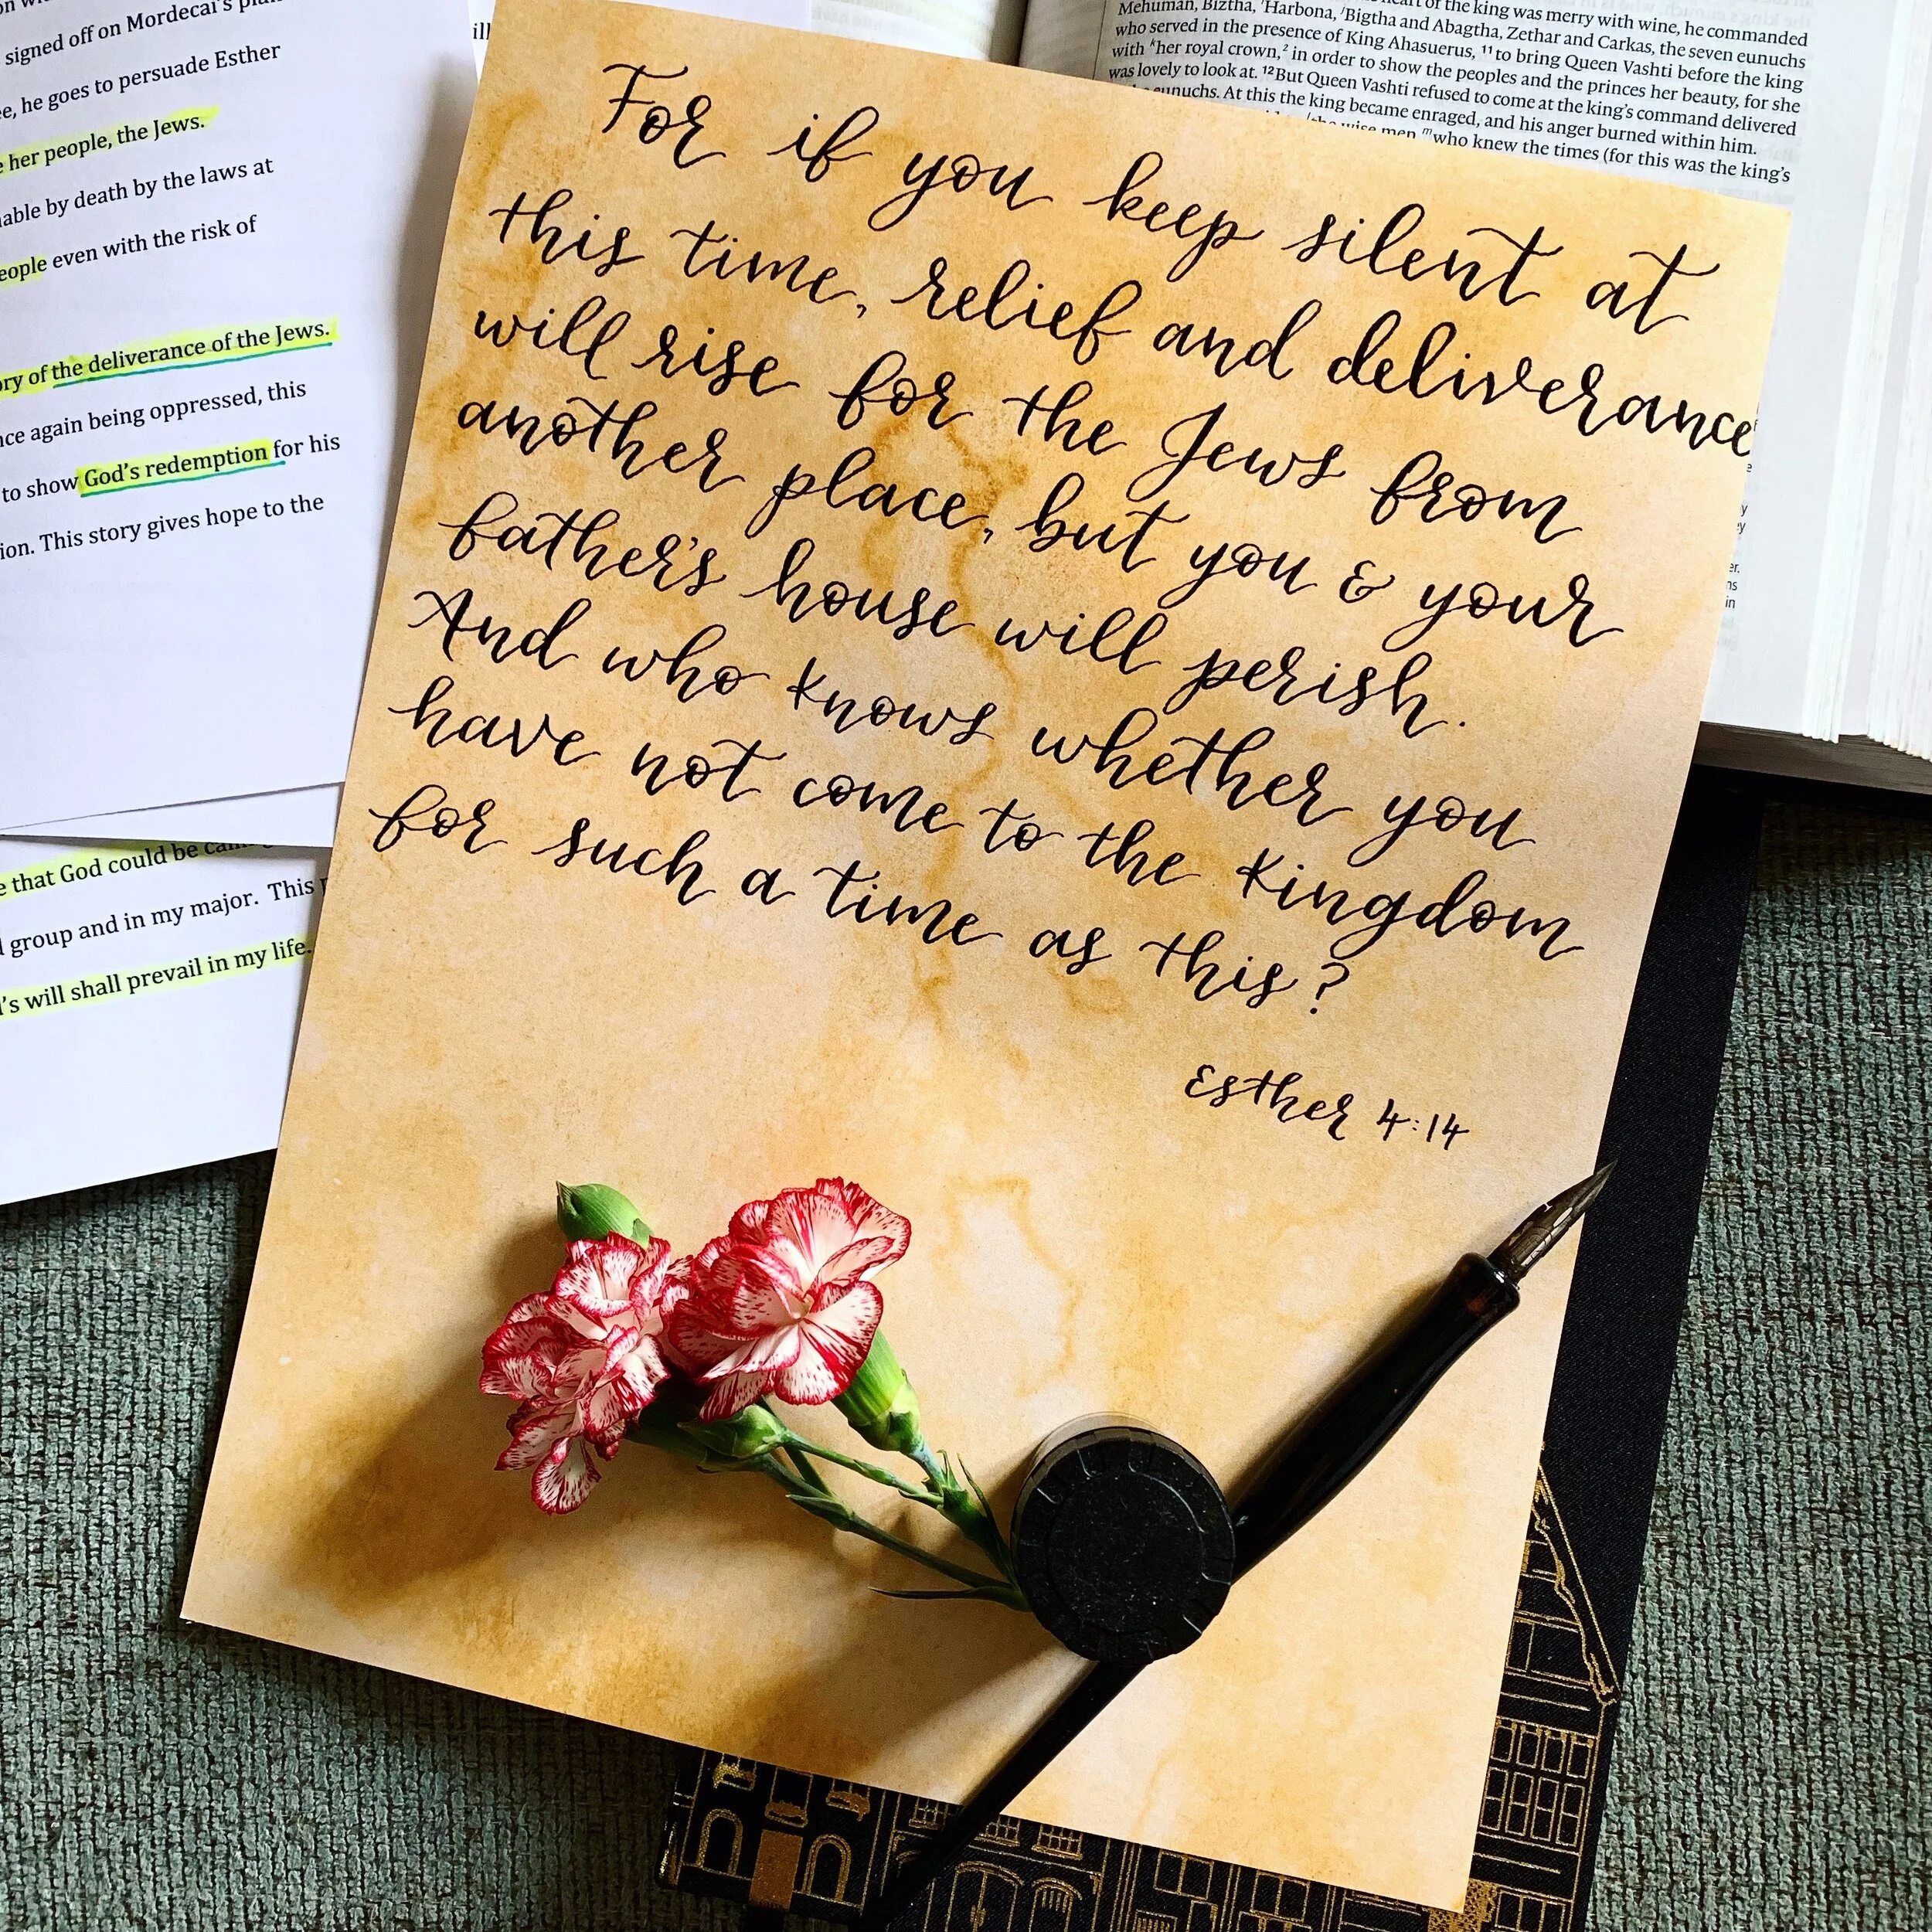 signed off on Mordecai's
he goes to persuade Esther
her people, the Jews.
able by death by the laws at
people even with the risk of
ory of the deliverance of the Jews.
again being oppressed, this
to show God's redemption for his
This story gives hope to the
that God could be
group and in my major. This
will shall prevail in my life.
of the king was merry with wine, he commanded
Mehuman, Biztha, Harbona, Bigtha and Abagtha, Zethar and Carkas, the seven eunuchs
who served in the presence of King Ahasuerus, 11 to bring Queen Vashti before the king
with her royal crown, in order to show the peoples and the princes her beauty, for she
was lovely to look at. 12 But Queen Vashti refused to come at the king's command delivered
eunuchs. At this the king became enraged, and his anger burned within him.
the wise men who knew the times (for this was the king's
For if you keep silent at
this time, relief and deliverance
will rise for the Jews from
another place, but you & your
father's house will perish.
And who knows whether you
have not come to the Kingdom
for such a time as this?
Esther 4:14